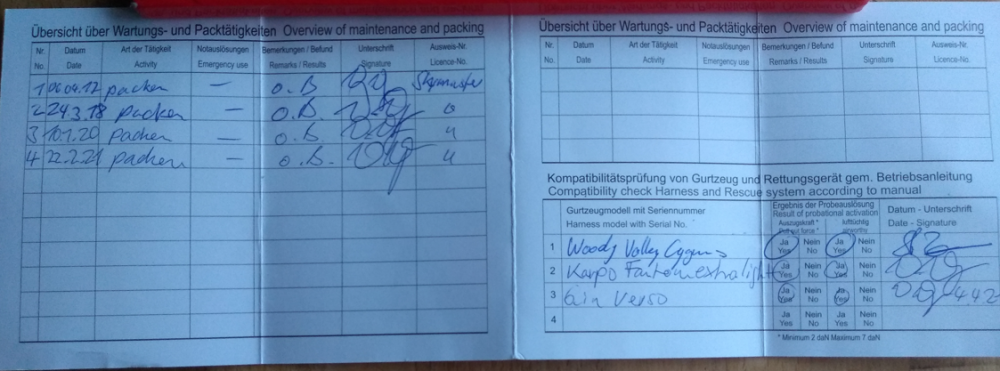 Übersicht über Wartungs- und Packtätigkeiten Overview of maintenance and packing
Nr. Datum Art der Tätigkeit Notauslösungen Bemerkungen / Befund Unterschrift Ausweis-Nr.
No. Date Activity Emergency use Remarks / Results Signature Licence-No.
1 06.04.12 packen — o.B
2 24.3.18 packen o.B. "
3 10.1.20 packen — o.B. "
4 22.2.21 packen — o.B. "
Übersicht über Wartungs- und Packtätigkeiten Overview of maintenance and packing
Nr. Datum Art der Tätigkeit Notauslösungen Bemerkungen / Befund Unterschrift Ausweis-Nr.
No. Date Activity Emergency use Remarks / Results Signature Licence-No.
Kompatibilitätsprüfung von Gurtzeug und Rettungsgerät gem. Betriebsanleitung
Compatibility check Harness and Rescue system according to manual
Gurtzeugmodell mit Seriennummer Ergebnis der Probeauslösung Datum - Unterschrift
Harness model with Serial No. Result of probational activation Date - Signature
Auszugskraft * lufttüchtig
Pull out force * airworthy
1 Woody Valley Ja Nein Ja Nein
Yes No Yes No
2 Karpo Fantom extralight Ja Nein Ja Nein
Yes No Yes No
3 Gin Verso Ja Nein Ja Nein
Yes No Yes No
4 Ja Nein Ja Nein
Yes No Yes No
* Minimum 2 daN Maximum 7 daN